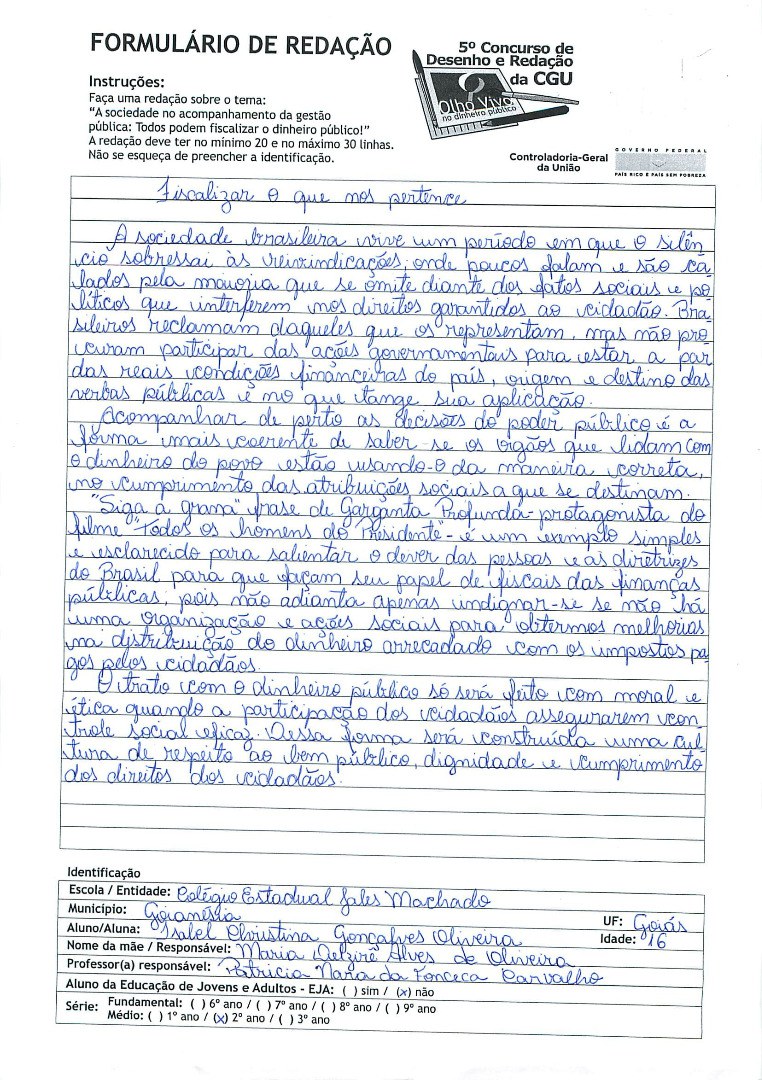 FORMULÁRIO DE REDAÇÃO
5º Concurso de
Desenho e Redação
da CGU
Olho Vivo
no dinheiro público
Instruções:
Faça uma redação sobre o tema:
“A sociedade no acompanhamento da gestão
pública: Todos podem fiscalizar o dinheiro público!”
A redação deve ter no mínimo 20 e no máximo 30 linhas.
Não se esqueça de preencher a identificação.
Controladoria-Geral
da União
GOVERNO FEDERAL
PAÍS RICO É PAÍS SEM POBREZA
Fiscalizar o que nos pertence
A sociedade brasileira vive um período em que o silên
cio sobressai às reivindicações; onde poucos falam e são ca
lados pela maioria que se omite diante dos fatos sociais e po
líticos que interferem nos direitos garantidos ao cidadão. Bra
sileiros reclamam daqueles que os representam, mas não pro
curam participar das ações governamentais para estar a par
das reais condições financeiras do país, origem e destino das
verbas públicas e no que tange sua aplicação.
Acompanhar de perto as decisões do poder público é a
forma mais coerente de saber-se se os orgãos que lidam com
o dinheiro do povo estão usando-o da maneira correta,
no cumprimento das atribuições sociais a que se destinam.
"Siga a grana" frase de Garganta Profunda-protagonista do
filme "Todos os homens do Presidente"- é um exemplo simples
e esclarecido para salientar o dever das pessoas e as diretrizes
do Brasil para que façam seu papel de fiscais das finanças
públicas, pois não adianta apenas indignar-se se não há
uma organização e ações sociais para obtermos melhorias
na distribuição do dinheiro arrecadado com os impostos pa
gos pelos cidadãos.
O trato com o dinheiro público só será feito com moral e
ética quando a participação dos cidadãos assegurarem con
trole social eficaz. Dessa forma será construída uma cul
tura de respeito ao bem público, dignidade e cumprimento
dos direitos dos cidadãos.
Identificação
Escola / Entidade: Colégio Estadual Jales Machado
Município: Goianésia UF: Goiás
Aluno/Aluna: Isabel Christina Gonçalves Oliveira Idade: 16
Nome da mãe / Responsável: Maria Delzirê Alves de Oliveira
Professor(a) responsável: Patricia Nara da Fonceca Carvalho
Aluno da Educação de Jovens e Adultos - EJA: ( ) sim / (x) não
Série: Fundamental: ( ) 6º ano / ( ) 7º ano / ( ) 8º ano / ( ) 9º ano
Médio: ( ) 1º ano / (x) 2º ano / ( ) 3º ano